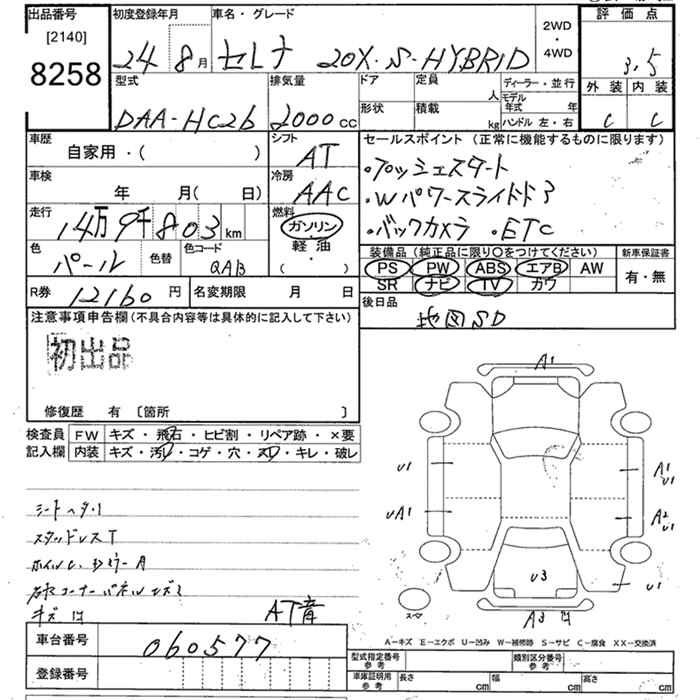 出品番号
[2140]
8258
初度登録年月
24 8月
車名・グレード
セレナ 20X・S-HYBRID
2WD
・
4WD
評価点
3.5
外装 内装
C C
型式
DAA-HC26
排気量
2000CC
ドア
形状
定員
人
積載
kg
ディーラー・並行
モデル年式 年
ハンドル 左・右
車歴
自家用・( )
シフト
AT
車検
年 月( 日)
冷房
AAC
走行
14万9千803km
燃料
ガソリン
軽油
( ・ )
色
パール
色替
色コード
QAB
R券
12160円
名変期限 月 日
セールスポイント(正常に機能するものに限ります)
・プッシュスタート
・Wパワースライドドア
・バックカメラ ・ETC
装備品(純正品に限り○をつけてください)
PS PW ABS エアB AW
SR ナビ TV カワ
新車保証書
有・無
後日品
地図SD
注意事項申告欄(不具合内容等は具体的に記入して下さい)
初出品
修復歴 有〔箇所 〕
検査員
記入欄
FW キズ・飛石・ヒビ割・リペア跡・×要
内装 キズ・汚レ・コゲ・穴・スレ・キレ・破レ
シートヘタリ
スタッドレスT
AT音
車台番号
060577
登録番号
A1
U1
A1
U1
UA1
A2
U1
U3
U1
スペア
A3
A-キズ E-エクボ U-凹み W-補修跡 S-サビ C-腐食 XX-交換済
型式指定番号
参考
類別区分番号
参考
車庫証明用
参考
長さ cm
幅 cm
高さ cm